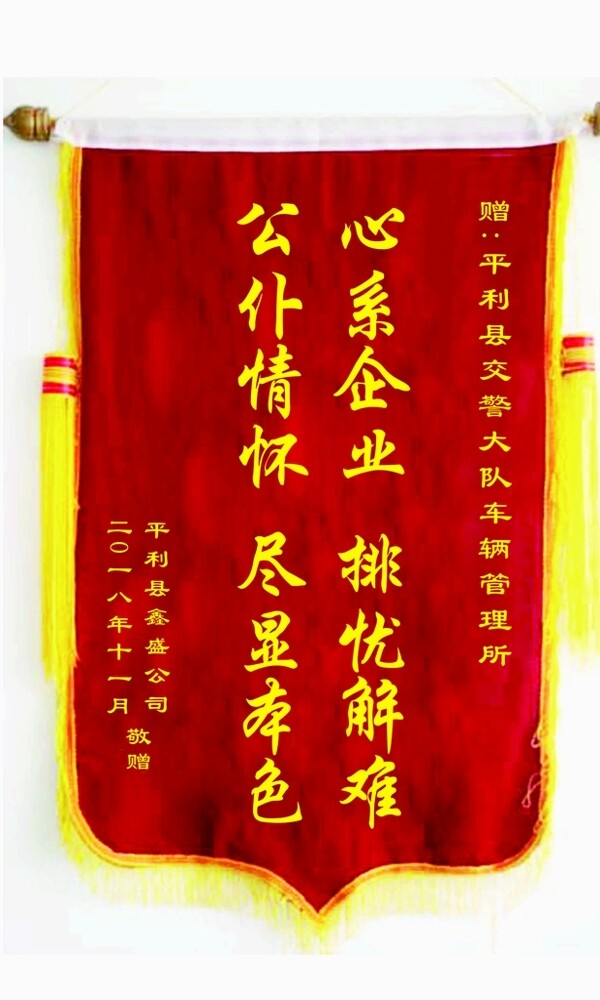 赠:平利县交警大队车辆管理所
心系企业 排忧解难
公仆情怀 尽显本色
平利县鑫盛公司
二〇一八年十一月
敬赠